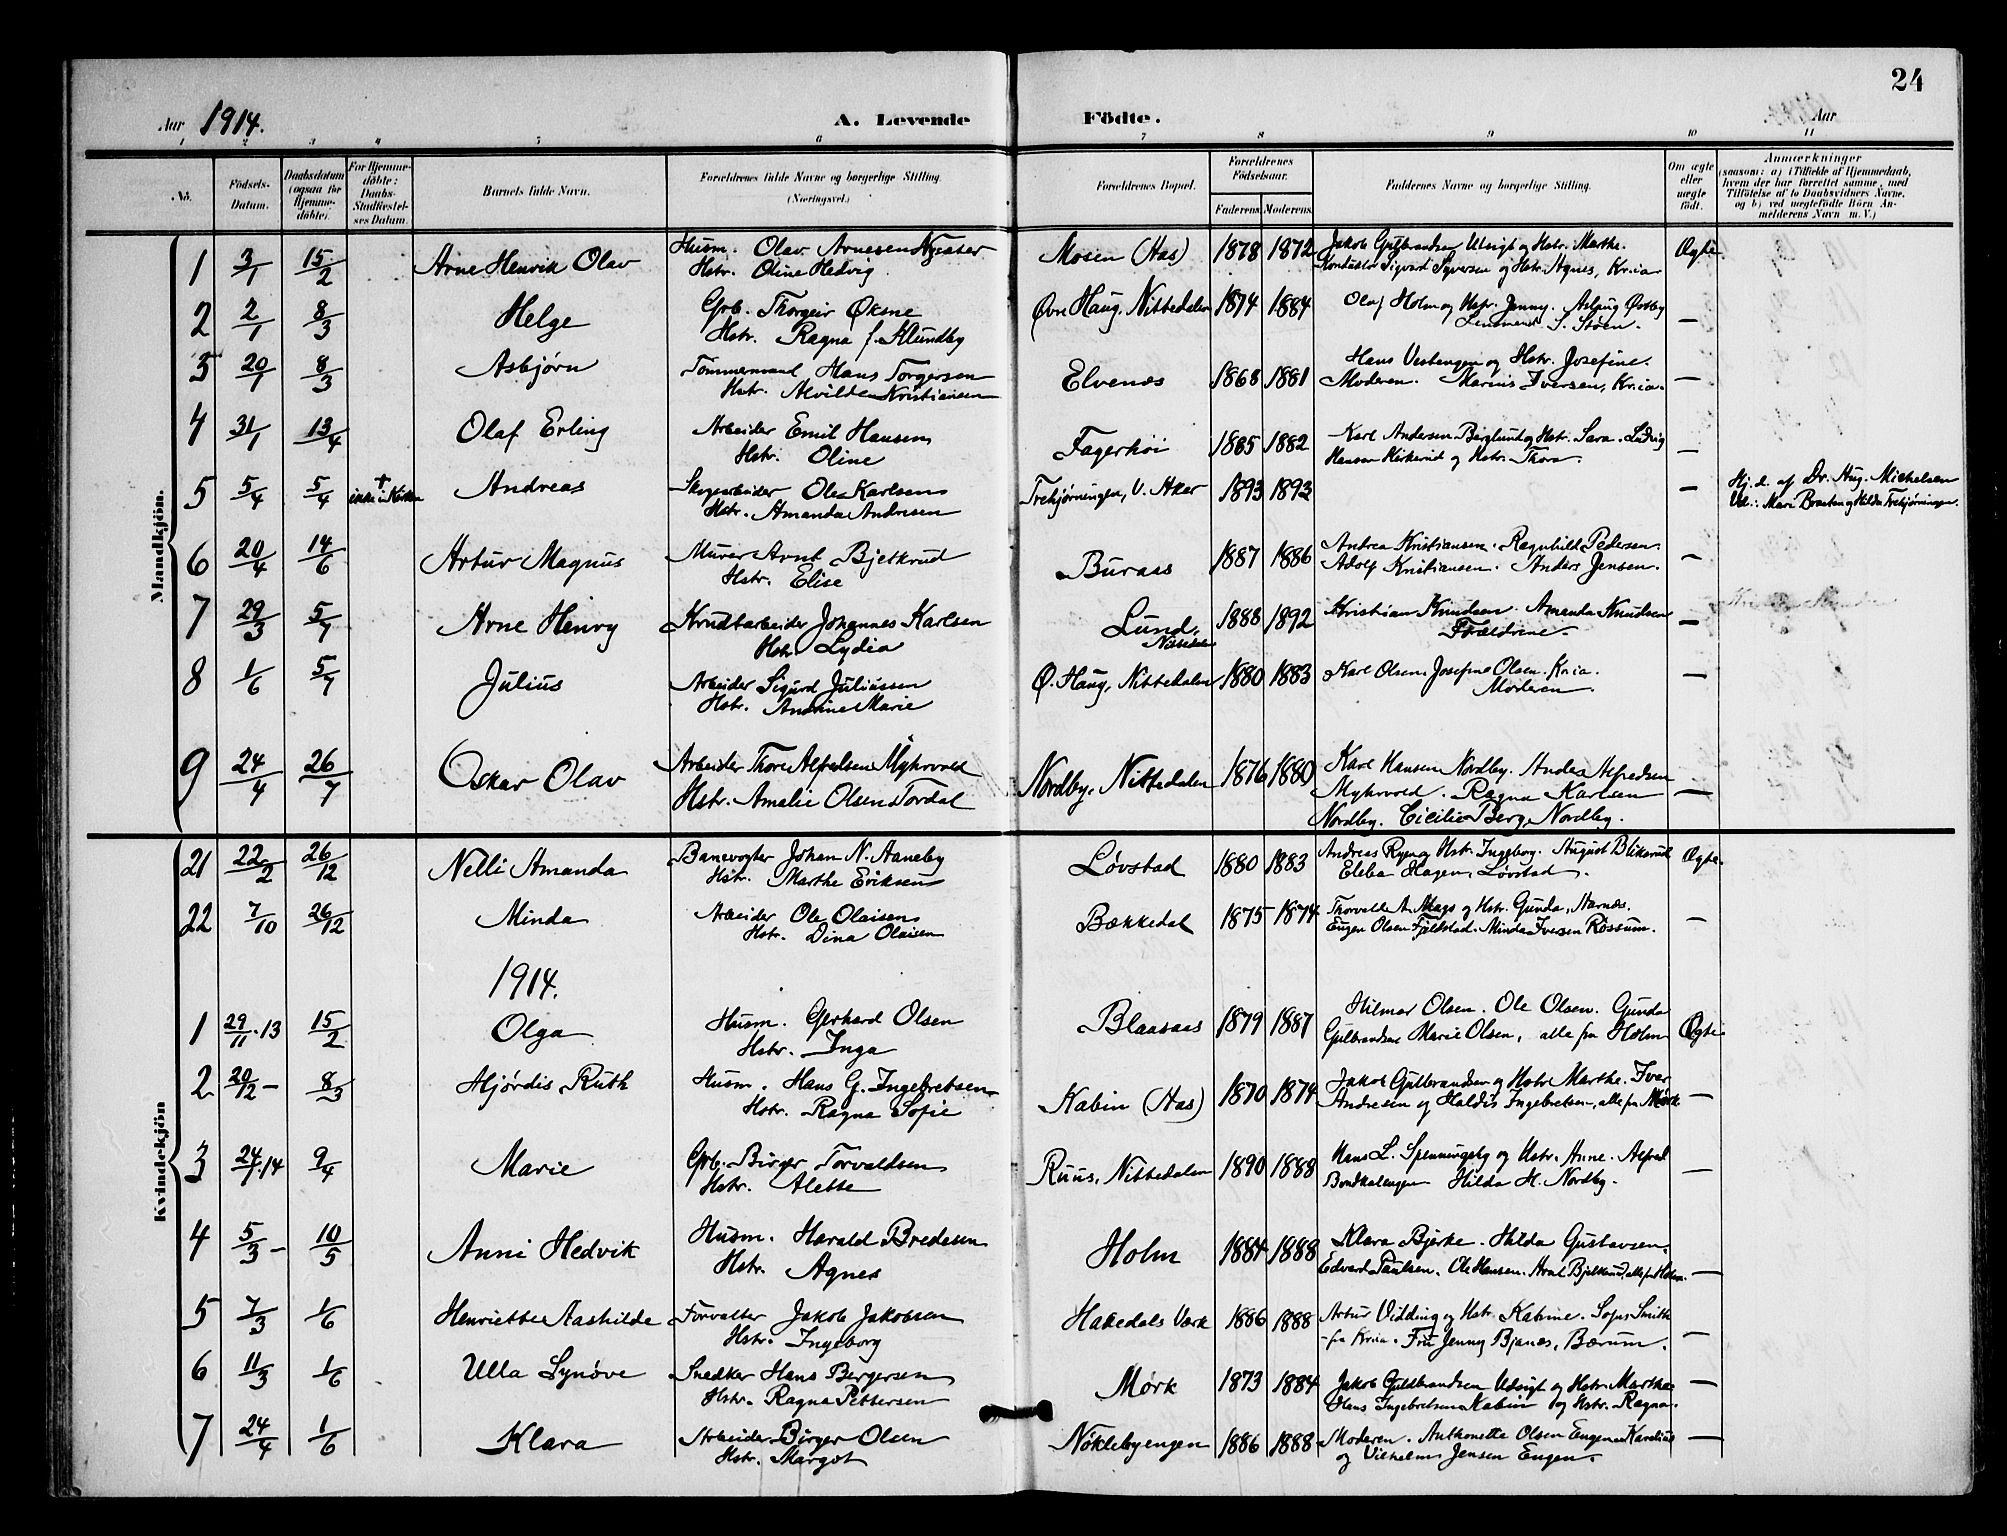 24
Aar 1914. A. Levende Födte. Aar
1 2 3 4 5 6 7 8 9 10 11
No. Födsels-Datum. Daabsdatum (ogsaa for Hjemmedöbte). For Hjemmedöbte: Daabs-Stadfæstelses Datum. Barnets fulde Navn. Forældrenes fulde Navne og borgerlige Stilling. (Næringsvei.) Forældrenes Bopæl. Forældrenes Födselsaar. Faderens. Moderens. Faddernes Navne og borgerlige Stilling. Om ægte eller uægte födt. Anmærkninger (saasom: a) i Tilfælde af Hjemmedaab, hvem der har forrettet samme, med Tilföielse af to Daabsvidners Navne, og b) ved uægtefödte Börn Anmelderens Navn m. V.)
Mandkjön.
1 3/1 15/2 Arne Henrik Olav Husm. Olav Arnesen Mosen (Aas) 1878 1872 Jakob Gulbrandsen Udsigt og Hstr. Marthe. Ægte
Hstr. Oline Hedvig Konduktör Sigvard Syversen og Hstr. Agnes, Kr.ia
2 2/1 8/3 Helge Grb. Thorgeir Øksne Øvre Haug, Nittedalen 1874 1884 Olaf Holm og Hstr. Jenny. Aslaug Østby —
Hstr. Ragna f. Klundby Lensmand S. Støen.
3 20/1 8/3 Asbjørn Tømmermand Hans Torgersen Elvenes 1868 1881 Hans Vestengen og Hstr. Josefine. —
Hstr. Alvilde Kristiansen Moderen. Marius Iversen, Kr.ia.
4 31/1 13/4 Olaf Erling Arbeider Emil Hansen Fagerhöi 1885 1882 Karl Andersen Berglund og Hstr. Sara. Ludvig —
Hstr. Oline Hansen Kirkerud og Hstr. Thora.
5 5/4 5/4 + ikke i Kirken Andreas Skogsarbeider Ole Karlsen Trehjørningen, V. Aker 1893 1893 — Hj.d. af Dr. Aug. Michelsen
Hstr. Amanda Andresen Vid.: Mari Braaten og Hilda Trehjørningen.
6 20/4 14/6 Artur Magnus Murer Arnt Bjelkrud Buraas 1887 1886 Andrea Kristiansen. Ragnhild Pedersen. —
Hstr. Elise Adolf Kristiansen. Anders Jensen.
7 29/3 5/7 Arne Henry Krudtarbeider Johannes Karlsen Lund, Nittedalen 1888 1892 Kristian Knudsen. Amanda Knudsen —
Hstr. Lydia Forældrene.
8 1/6 5/7 Julius Arbeider Sigurd Juliussen Ø. Haug, Nittedalen 1880 1883 Karl Olsen, Josefine Olsen. Kr.ia. —
Hstr. Andrine Marie Moderen.
9 24/4 26/7 Oskar Olav Arbeider Thore Alfredsen Myhrvold Nordby, Nittedalen 1876 1880 Karl Hansen Nordby. Anders Alfredsen —
Hstr. Amalie Olsen Tordal Myhrvold. Ragna Karlsen
Nordby. Cicilie Berg, Nordby.
Kvindekjön
21 22/2 26/12 Nelli Amanda Banevogter Johan N. Aaneby Løvstad 1880 1883 Andreas Ryen og Hstr. Ingeborg. August Blikerud Ægte
Hstr. Marthe Eriksen Hagen, Løvstad.
22 7/10 26/12 Minda Arbeider Ole Olaisen Bækkedal 1875 1874 Thorvald A. og Hstr. Gunda, Harnæs. —
Hstr. Dina Olaisen Eugen Olsen Fjeldstad. Minda Iversen Røssum.
1914.
1 29/11.13 15/2 Olga Husm. Gerhard Olsen Blaasaas 1879 1887 Hilmar Olsen. Ole Olsen. Gunda Ægte
Hstr. Inga Gulbrandsen Marie Olsen, alle fra Holm
2 20/12 – 8/3 Hjørdis Ruth Husm. Hans G. Ingebretsen Kabin (Aas) 1870 1874 Jakob Gulbrandsen og Hstr Marthe. Iver —
Hstr. Ragna Sofie Andresen og Haldis Ingebretsen, alle fra Mørk
3 24/1.14 9/4 Marie Grb. Birger Torvaldsen Ruus, Nittedalen 1890 1888 Hans L. Spenningsby og Hstr. Anne. Alfred —
Hstr. Alette Bondkalengen Hilda H. Nordby.
4 5/3 – 10/5 Anni Hedvik Husm. Harald Bredesen Holm 1884 1888 Klara Bjerke. Hilda Gustavsen. —
Hstr. Agnes Edvard Paulsen. Ole Hansen. Arnt Bjelkerud, alle fra Holm.
5 7/3 1/6 Henriette Aashilde Forvalter Jakob Jakobsen Hakedals Værk 1886 1888 Artur Vidding og Hstr Katrine. Sofus Smith —
Hstr. Ingeborg fra Kr.ia. Fru Jenny Bjanes, Bærum.
6 11/3 1/6 Ulla Synøve Snedker Hans Bergersen Mørk 1873 1884 Jakob Guldbrandsen Udsigt og Hstr Marthe —
Hstr. Ragna Pettersen Hans Ingebretsen Kabin og Hstr. Ragna.
7 24/4 1/6 Klara Arbeider Birger Olsen Nöklebyengen 1886 1888 Moderen. Anthonette Olsen Engen Karelius —
Hstr. Margot og Vilhelm Jensen Engen.